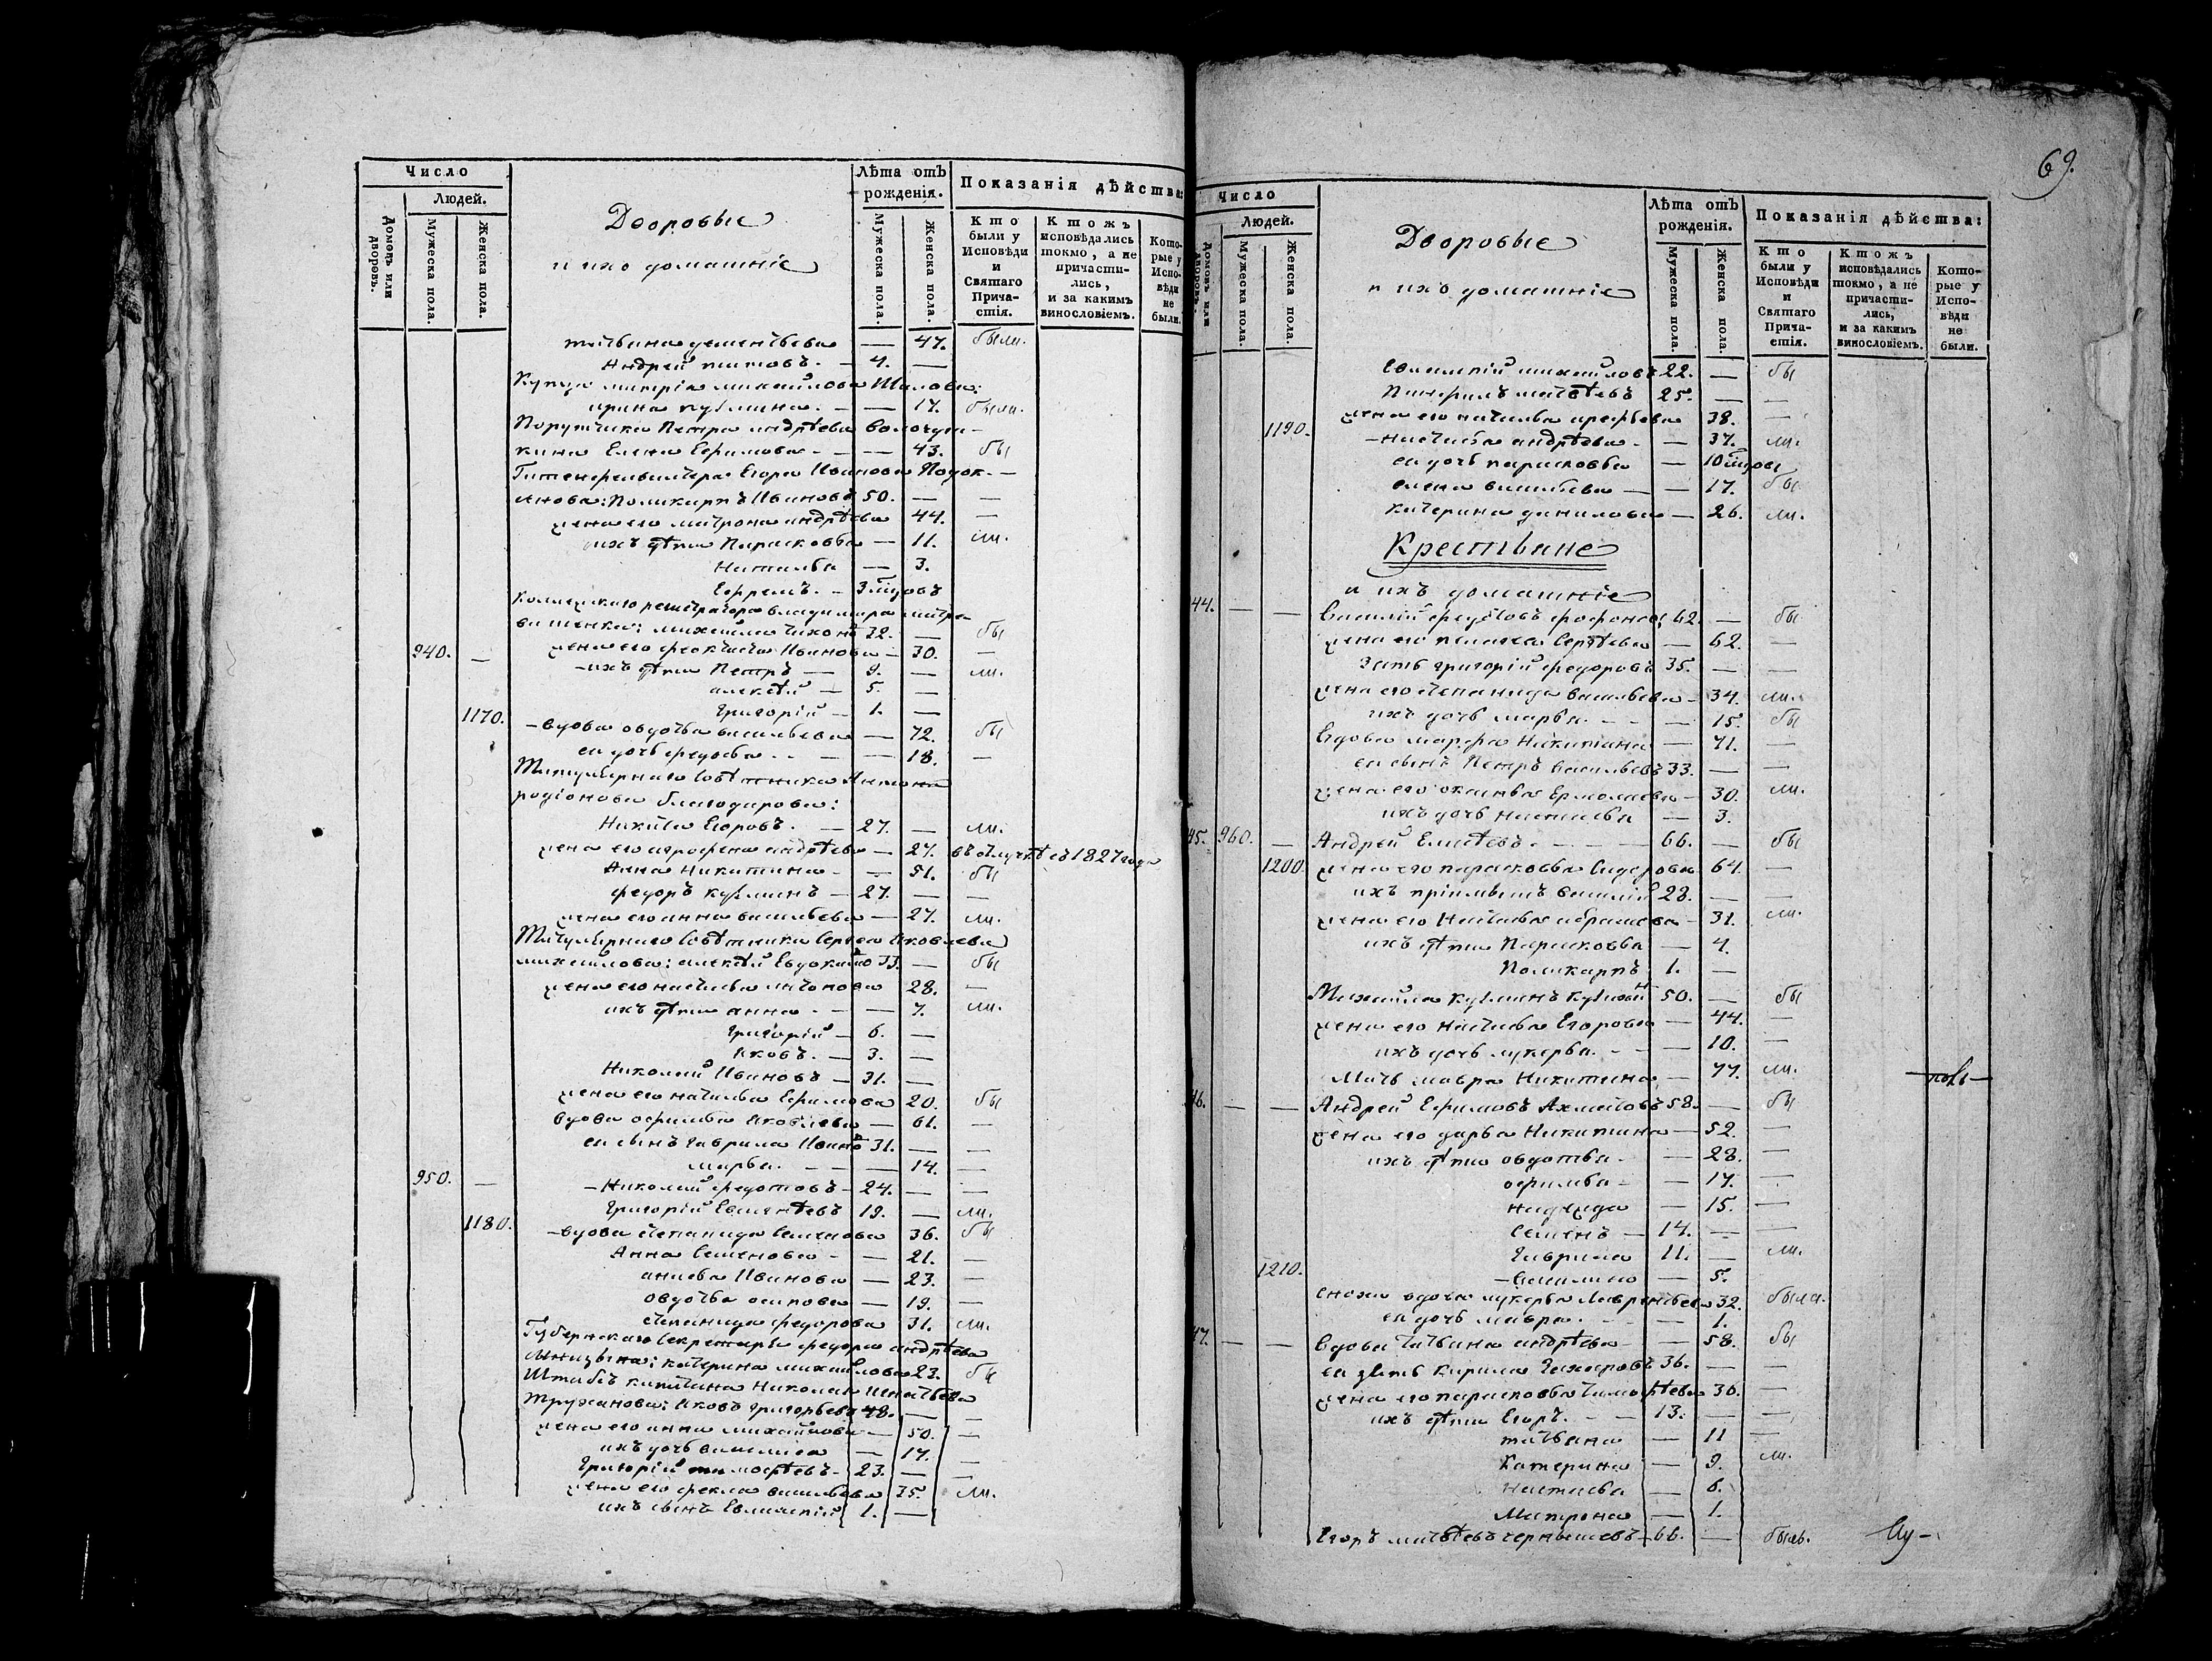 Число
Людей.
Домовъ или дворовъ.
Мужеска пола.
Женска пола.
Дворовые
и ихъ домашніе
Лѣта отъ рожденія.
Мужеска пола.
Женска пола.
Показанія дѣйства:
Кто были у Исповѣди и Святаго Прича-стія.
Ктожъ исповѣдались токмо, а не причасти-лись, и за какимъ винословіемъ.
Кото-рые у Испо-вѣди не были.
татьяна дементьева — 47. были.
Андрей титовъ. — 4. —
ирина кузмина. — — 17. была.
Порутчика Петра андрѣева
кина Елена Ефимова — — 43. бы
Егора Иванова
Поликарпъ Ивановъ 50. — —
жена его матрона андрѣева 44. —
ихъ дѣти Парасковья — 11. ли.
Наталья — 3.
Ефремъ. — 3 мцовъ
Колежскаго регистратора владимира
михаила тихонъ 32. — бы
940. — жена его феоктиста Иванова — 30. —
ихъ дѣти Петръ — 9. — ли.
алексѣй — 5. —
1170. Григорій — 1. —
вдова овдотья васильева — 72. бы
ея дочь федосья — — 18. —
Титулярнаго Совѣтника Антона
родіонова благодарова:
Никита Егоровъ. — 27. — ли.
жена его аграфена андрѣева — 27. въ отлучкѣ съ 1827 года
Анна Никитина — — 51. бы
федоръ кузминъ — 27. — —
жена его анна васильева — 27. ли.
Титулярнаго Совѣтника Сергея Яковлева
михайлова: алексѣй Евдокимо 33. — бы
жена его наталья антонова 28. —
ихъ дѣти анна — — 7. ли.
Григорій — 6. —
Яковъ. — 3. —
Николай Ивановъ — 31. —
жена его наталья Ефимова 20. бы
вдова офимья Яковлева — 61. —
ея сынъ Гаврила Ивано 31. — —
марья. — — 14. —
950. — Николай федотовъ — 24. — —
Григорій 19. — ли.
1180. вдова степанида Семенова 36. бы
Анна Семенова — — 21. —
анисья Иванова — 23. —
овдотья осипова — 19. —
степанида федорова 31. ли.
Губернскаго Секретаря федора андрѣева
катерина михайлова 23. бы
Штабсъ капитана Николая Игнатьева
Труханова: Яковъ григорьевъ 48. — —
жена его анна михайлова — 50. —
ихъ дочь василиса — 17. —
Григорій тимофѣевъ — 23. — —
жена его фекла васильева 25. ли.
ихъ сынъ Евлампій 1. —
69.
Число
Людей.
Домовъ или дворовъ.
Мужеска пола.
Женска пола.
Дворовые
и ихъ домашніе
Лѣта отъ рожденія.
Мужеска пола.
Женска пола.
Показанія дѣйства:
Кто были у Исповѣди и Святаго Прича-стія.
Ктожъ исповѣдались токмо, а не причасти-лись, и за какимъ винословіемъ.
Кото-рые у Испо-вѣди не были.
Евлампій михайловъ 22. — бы
Панфилъ матвѣевъ 25. — —
жена его наталья арефьева 38. —
1190. настасья андрѣева — — 37. ли.
ея дочь парасковья — 10 мцовъ
елена васильева — — 17. бы
катерина данилова — 26. ли.
Крестьяне
и ихъ домашніе
44. — — Василій федотовъ 62. — бы
жена его пелагея Сергѣева — 62. —
зять григорій федоровъ 35. — —
жена его степанида васильева — 34. ли.
ихъ дочь марья — — 15. бы
Вдова марфа Никитина — 71. —
ея сынъ Петръ васильевъ 33. — —
жена его Ермолаева — 30. ли.
ихъ дочь настасья — 3.
45. 960. — Андрей Елисѣевъ. — — 66. — бы
1200. жена его парасковья Сидорова 64. —
ихъ пріимышъ василій 28. — —
жена его настасья абрамова — 31. ли.
ихъ дѣти Парасковья — 4.
Поликарпъ 1. —
Михаила кузминъ 50. — бы
жена его настасья Егорова — 44. —
ихъ дочь лукерья. — — 10. —
Мать мавра Никитина — 77. ли.
46. — — Андрей Ефимовъ Ахматовъ 58. — бы
жена его дарья Никитина — 52. —
ихъ дѣти овдотья — — 28. —
офимья — — 17. —
надежда — 15. —
Семенъ — 14. — —
Гаврила 11. — ли.
1210. василиса — 5.
сноха вдова лукерья Лаврентьева 32. была.
ея дочь мавра. — — 1.
47. — — Вдова татьяна андрѣева — 58. бы
ея зять кирила Захаровъ 36. — —
жена его парасковья тимофѣева 36. —
ихъ дѣти Егоръ. — — 13. — —
татьяна — 11 —
Катерина — 9. ли.
настасья — 6.
Матрона — 1.
Егоръ матвѣевъ чернышевъ — 66. — былъ.